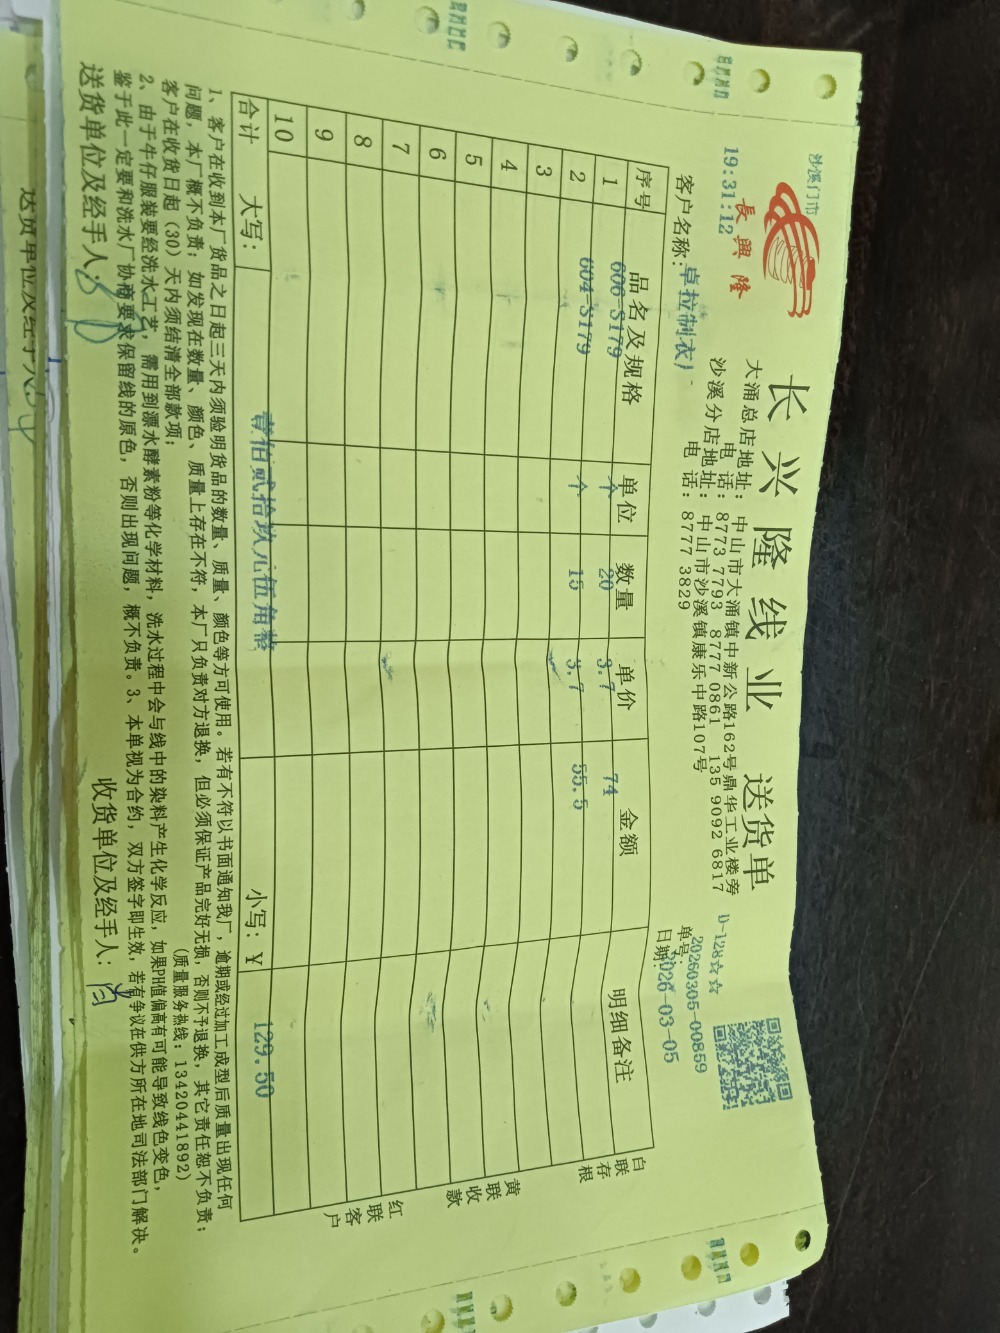 沙溪门市
長興隆
19:31:12
长兴隆线业 送货单
大涌总店地址：中山市大涌镇中新公路162号鼎华工业楼旁
电 话：8773 7793 8777 0861 135 9092 6817
沙溪分店地址：中山市沙溪镇康乐中路107号
电 话：8777 3829
D-128☆☆
单号：20260305-00859
日期：2026-03-05
客户名称：卓拉制衣）
序号 品名及规格 单位 数量 单价 金额 明细备注
1 606-S179 个 20 3.7 74
2 604-S179 个 15 3.7 55.5
3
4
5
6
7
8
9
10
合计 大写：壹佰贰拾玖元伍角整 小写：￥ 129.50
白联存根
黄联收款
红联客户
1、客户在收到本厂货品之日起三天内须验明货品的数量、质量、颜色等方可使用。若有不符以书面通知我厂，逾期或经过加工成型后质量出现任何
问题，本厂概不负责；如发现在数量、颜色、质量上存在不符，本厂只负责对方退换，但必须保证产品完好无损，否则不予退换，其它责任恕不负责；
客户在收货日起（30）天内须结清全部款项；
（质量服务热线：13420441892）
2、由于牛仔服装要经洗水工艺，需用到漂水酵素粉等化学材料，洗水过程中会与线中的染料产生化学反应，如果PH值偏高有可能导致线色变色，
鉴于此一定要和洗水厂协商要求保留线的原色，否则出现问题，概不负责。3、本单视为合约，双方签字即生效，若有争议在供方所在地司法部门解决。
送货单位及经手人：
收货单位及经手人：
送货单位及经手人